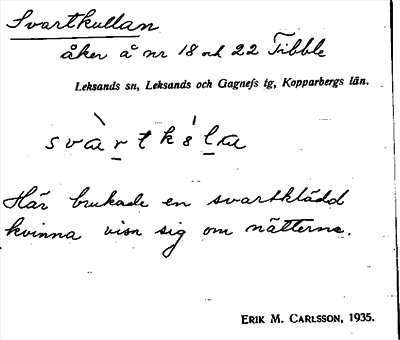 Svartkullan
åker å nr 18 och 22 Tibble
Leksands sn, Leksands och Gagnefs tg, Kopparbergs län.
svàrtkśla
Här brukade en svartklädd
kvinna visa sig om nätterna.
ERIK M. CARLSSON, 1935.